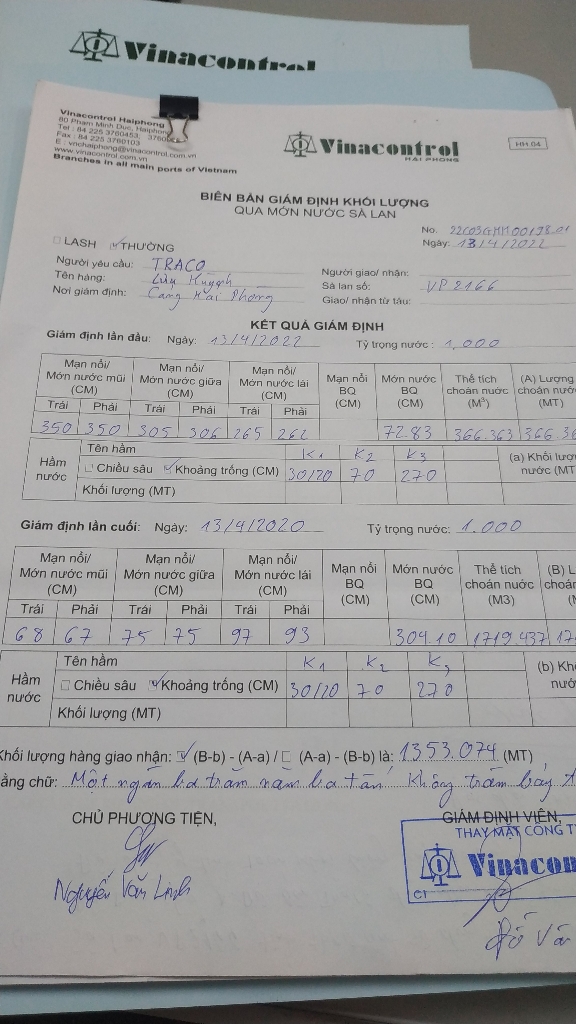 Vinacontrol
Vinacontrol Haiphong
80 Pham Minh Duc, Haiphong
Tel : 84 225 3760453;
Fax : 84 225 3760103
E : vnchaiphong@vinacontrol.com.vn
www.vinacontrol.com.vn
Branches in all main ports of Vietnam
Vinacontrol
HAI PHONG
HH 04
BIÊN BẢN GIÁM ĐỊNH KHỐI LƯỢNG
QUA MỚN NƯỚC SÀ LAN
No.
Ngày: 13/4/2022
LASH THƯỜNG
Người yêu cầu: TRACO
Người giao/ nhận:
Tên hàng: Lưu Huỳnh
Sà lan số: VP 2166
Nơi giám định: Cảng Hải Phòng
Giao/ nhận từ tàu:
KẾT QUẢ GIÁM ĐỊNH
Giám định lần đầu: Ngày: 13/4/2022 Tỷ trọng nước : 1,000
Mạn nổi/ Mớn nước mũi (CM) Mạn nổi/ Mớn nước giữa (CM) Mạn nổi/ Mớn nước lái (CM) Mạn nổi BQ (CM) Mớn nước BQ (CM) Thể tích choán nước (M³) (A) Lượng choán nước (MT)
Trái Phải Trái Phải Trái Phải
350 350 305 306 265 262 72.83 366.363
Hầm nước Tên hầm K1 K2 K3
Chiều sâu Khoảng trống (CM) 30/20 70 270 (a) Khối nước (MT
Khối lượng (MT)
Giám định lần cuối: Ngày: 13/4/2020 Tỷ trọng nước: 1.000
Mạn nổi/ Mớn nước mũi (CM) Mạn nổi/ Mớn nước giữa (CM) Mạn nổi/ Mớn nước lái (CM) Mạn nổi BQ (CM) Mớn nước BQ (CM) Thể tích choán nước (M3) (B)
Trái Phải Trái Phải Trái Phải
68 67 75 75 97 93 304.10 1719.437
Hầm nước Tên hầm K1 K2 K3
Chiều sâu Khoảng trống (CM) 30/20 70 270 (b)
Khối lượng (MT)
Khối lượng hàng giao nhận: (B-b) - (A-a) / (A-a) - (B-b) là: 1353.074 (MT)
bằng chữ: Một ngàn ba trăm năm ba tấn, không trăm bảy
CHỦ PHƯƠNG TIỆN,
GIÁM ĐỊNH VIÊN,
THAY MẶT CÔNG T
Vinacontrol
Nguyễn Văn Linh
Đỗ Vă